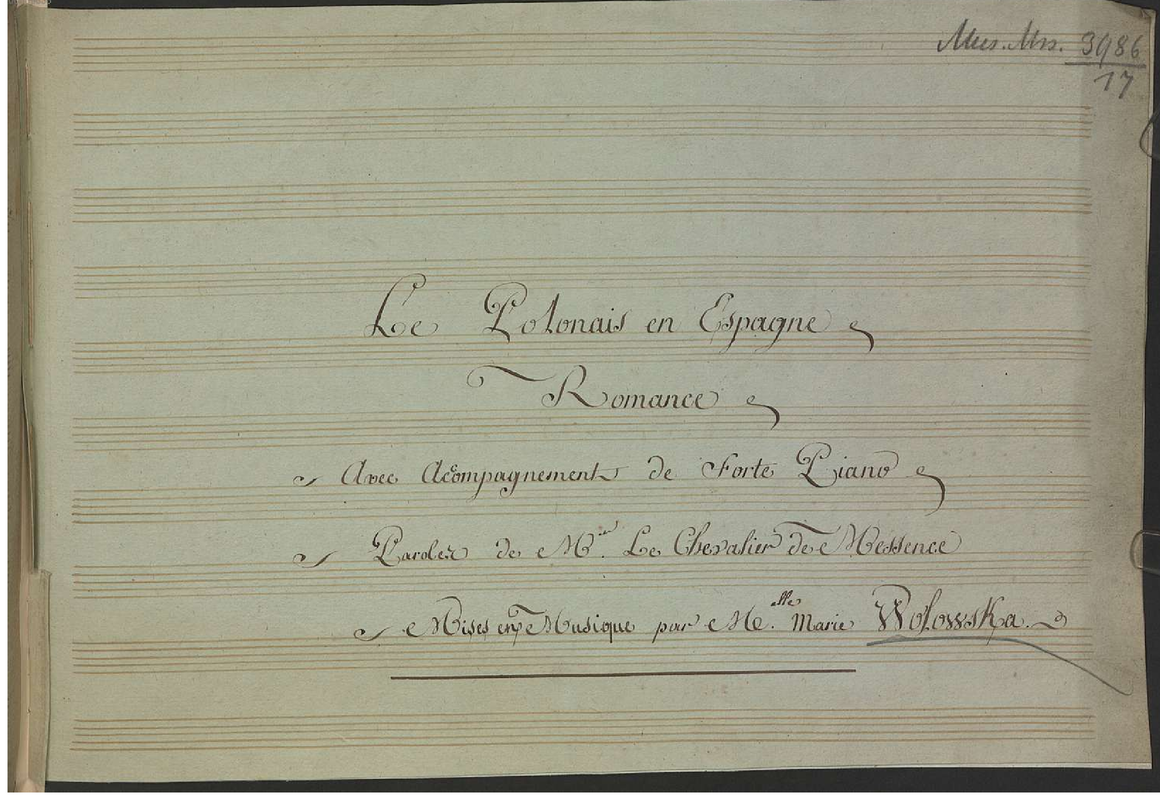 Mus. Mss. 3986
17
Le Polonais en Espagne
Romance
Avec Acompagnement de Forte Piano
Paroles de Mr. Le Chevalier de Messence
Mises en Musique par Melle Marie Wolowska.